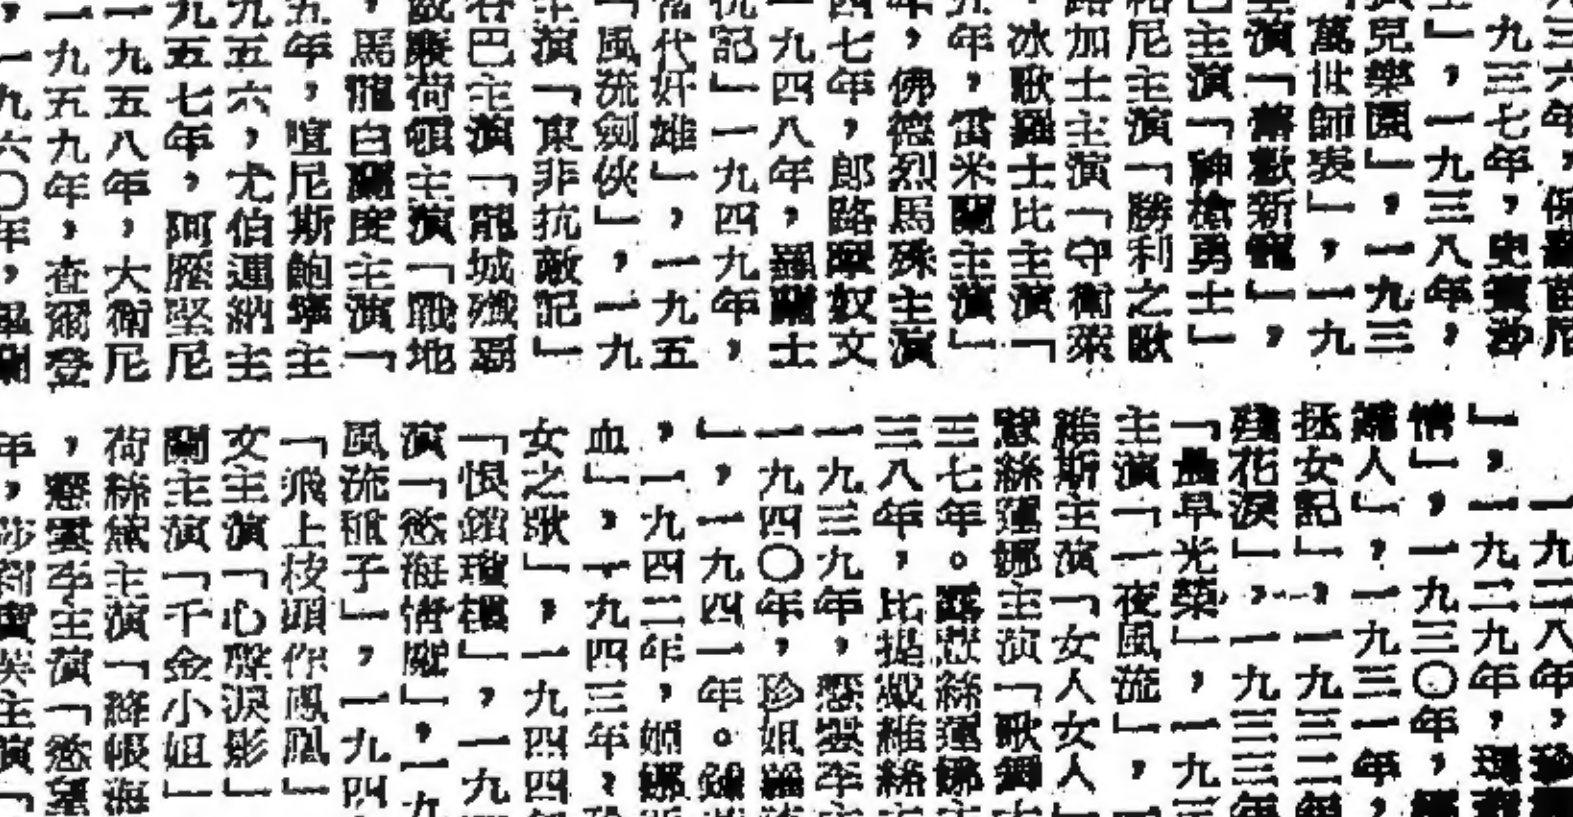 三六年,保羅茵尼
九三七年,史賓沙
」,一九三八年,
兒樂園」,一九三
萬世師表」,一九
主演「舊歡新寵」,
主演「神槍勇士」
尼主演「勝利之歌
路加士主演「守衛萊
,冰歌羅士比主演「
年,雷米蘭主演」
年,佛德烈馬殊主演
四七年,郎路奴文
一九四八年,羅蘭士
記」一九四九年,
當代奸雄」,一九五
「風流劍俠」,一九
主演「東非抗敵記」
谷巴主演「龍城殲霸
威廉荷頓主演「戰地
,馬龍白蘭度主演「
五年,喧尼斯鮑寧主
九五六,尤伯連納主
九五七年,阿歷堅尼
一九五八年,大衛尼
一九五九年,查爾登
一九六〇年,畢蘭
一九二八年,珍
」,一九二九年,瑪
情」,一九三〇年,
婦人」,一九三一年,
拯女記」,一九三二年
殘花淚」,一九三三年
「晨早光榮」,一九三
主演「一夜風流」,一
維斯主演「女人女人」
慧絲蓮娜主演「歌舞
三七年。露慧絲蓮娜主
三八年,比提戴維絲
一九三九年,慧雲李主
一九四〇年,珍姐羅
」,一九四一年。
,一九四二年,娜
血」,一九四三年,
女之歌」,一九四四年
「恨鎖瓊樓」,一九
演「慾海情魔」,一九
風流種子」,一九四
「飛上枝頭作鳳凰」
文主演「心聲淚影」
蘭主演「千金小姐」
荷絲黛主演「絳帳海
,慧雲李主演「慾望
年,莎莉寶英主演「